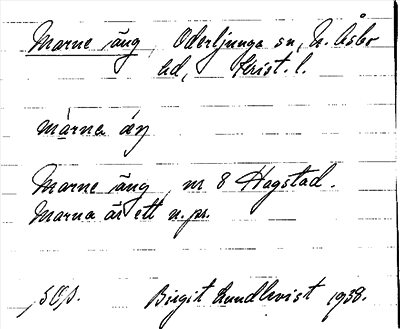 Marne äng, Oderljunga sn, N. Åsbo
hd, Krist. l.
márna áŋ
Marne äng, nr 8 Hagstad.
Marna är ett n. pr.
Birgit Lundkvist 1938.